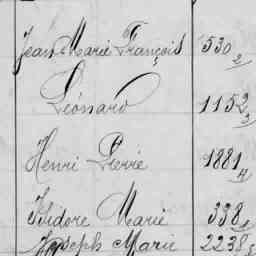 Jean Marie François 530 2
Léonard 1152 3
Henri Pierre 1881 4
Isidore Marie 338 1
Joseph Marie 2238 5